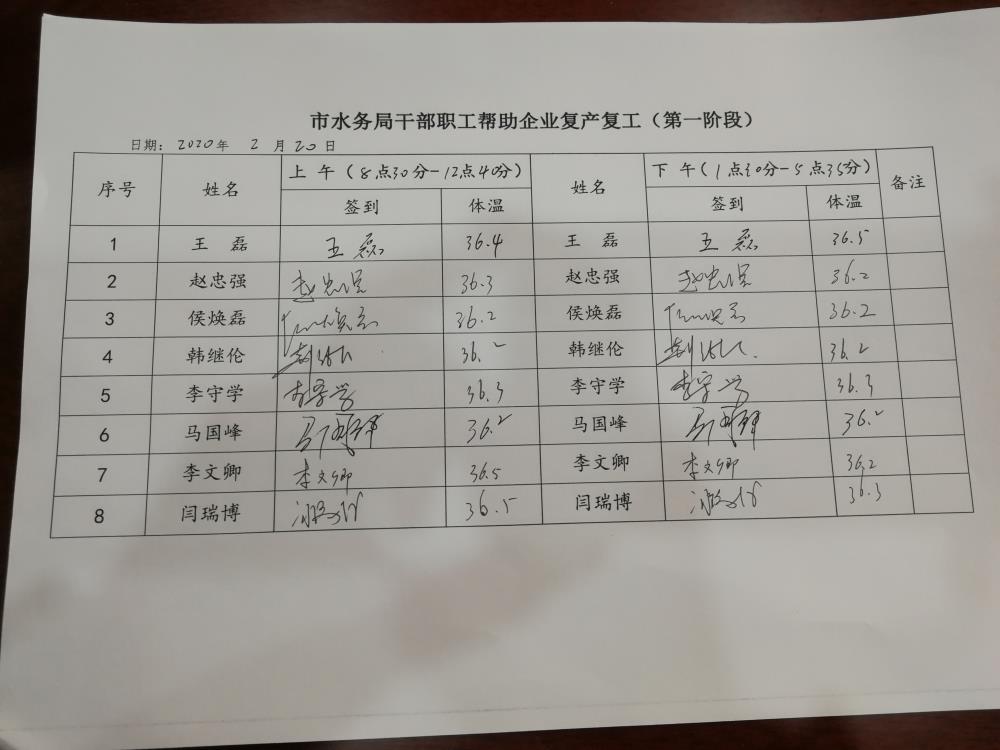 市水务局干部职工帮助企业复产复工（第一阶段）
日期：2020年 2 月 20 日
序号 姓名 上 午（8点30分-12点40分） 姓名 下 午（1点30分-5点35分） 备注
签到 体温 签到 体温
1 王 磊 王磊 36.4 王 磊 王磊 36.5
2 赵忠强 赵忠强 36.3 赵忠强 赵忠强 36.2
3 侯焕磊 36.2 侯焕磊 36.2
4 韩继伦 36.2 韩继伦 36.2
5 李守学 李守学 36.3 李守学 李守学 36.3
6 马国峰 马国峰 36.2 马国峰 马国峰 36.2
7 李文卿 李文卿 36.5 李文卿 李文卿 36.2
8 闫瑞博 36.5 闫瑞博 36.3